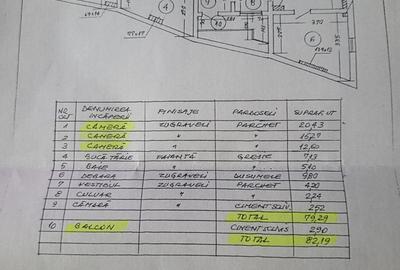 4
9
10
8
6
NR. CRT. DENUMIREA INCĂPERII FINISAJE PARDOSELI SUPRAF. UT
1 CAMERĂ ZUGRAVELI PARCHET 20,43
2 CAMERĂ " " 15,27
3 CAMERĂ " " 12,60
4 BUCĂTĂRIE FAIANTĂ GRESIE 7,13
5 BAIE " " 5,10
6 DEBARA ZUGRAVELI DUSUMELE 9,80
7 VESTIBUL ZUGRAVELI PARCHET 4,20
8 CULOAR " " 2,24
9 CĂMARĂ " 2,52
TOTAL 79,29
10 BALCON 2,90
TOTAL 82,19